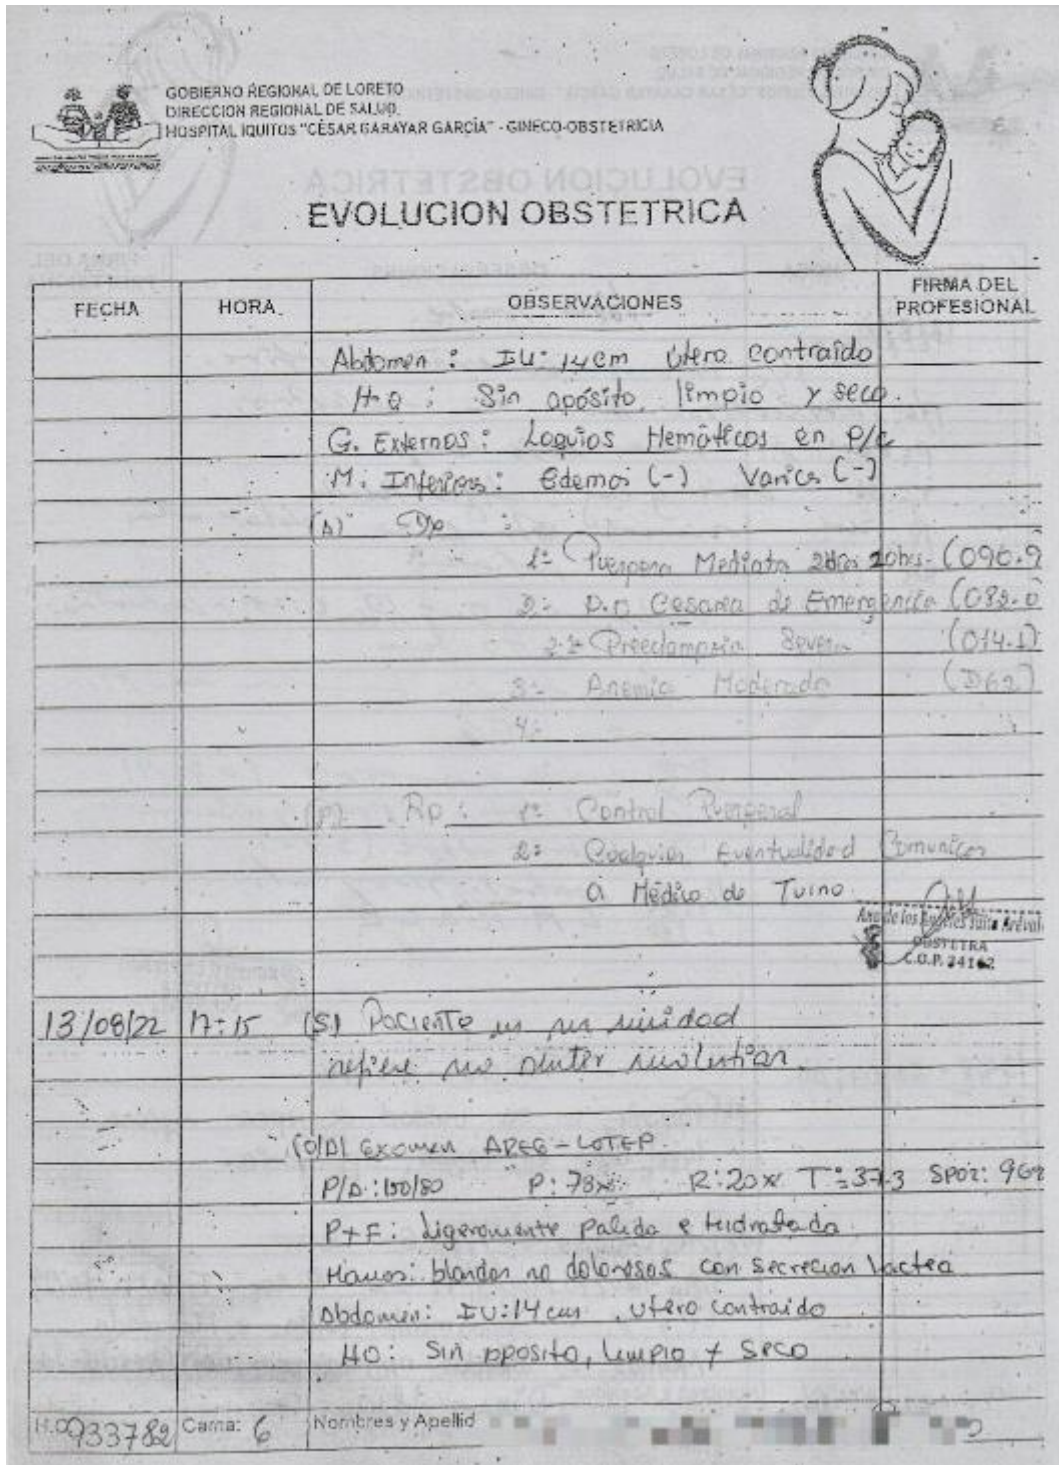 GOBIERNO REGIONAL DE LORETO
DIRECCION REGIONAL DE SALUD.
HOSPITAL IQUITOS "CÉSAR GARAYAR GARCÍA" - GINECO-OBSTETRICIA
EVOLUCION OBSTETRICA
FECHA HORA. OBSERVACIONES FIRMA DEL PROFESIONAL
Abdomen : IU: 14cm Útero contraído
H.O : Sin apósito, limpio y seco.
G. Externos : Loquios Hemáticos en P/C
M. Inferiores : Edemas (-) Varices (-)
(A) Dx :
1: Puerpera Mediata 2días 20hrs. (O90.9
2: P.O Cesarea de Emergencia (O82.0
2: Preeclampsia Severa (O14.1)
3: Anemia Moderada (D62)
4:
(P) Rp : 1: Control Puerperal
2: Cualquier Eventualidad Comunicar
a Médico de Turno
Ana de los Angeles Arévalo
OBSTETRA
C.O.P. 24162
13/08/22 17:15 (S) Paciente en su unidad
refiere no sentir molestias.
(O/A) Examen AREG-LOTEP.
P/A: 150/80 P: 78x R: 20x T°: 37.3 SPO2: 96%
P+F: Ligeramente Palida e Hidratada
Mamas: blandas no dolorosas con secrecion lactea
Abdomen: IU: 14cm, utero contraido
HO: Sin aposito, limpio y seco
H.C 933782 Cama: 6 Nombres y Apellid